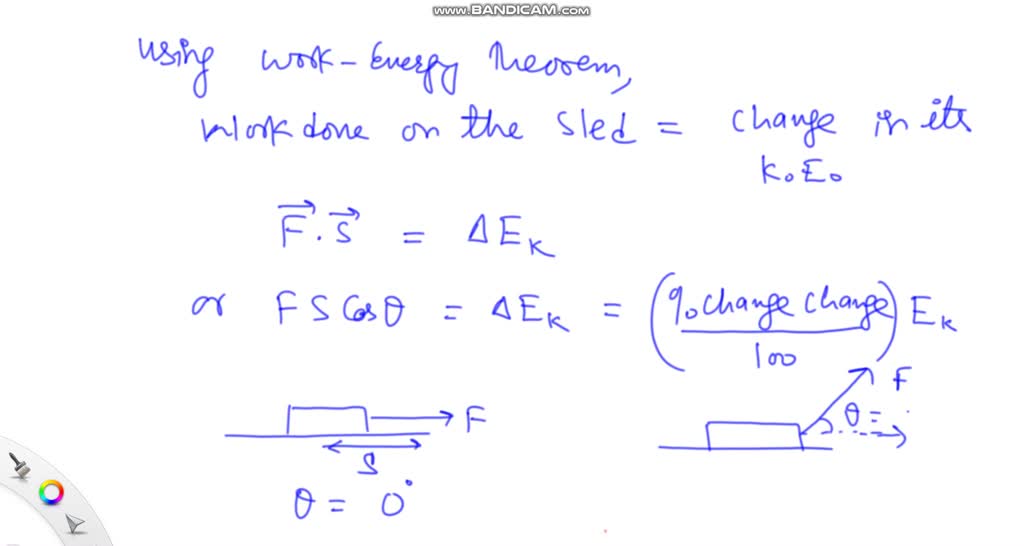 www.BANDICAM.com
using work-Energy Theorem,
Work done on the sled = change in its
K.E.
F⃗.s⃗ = ΔE_K
or FS Cosθ = ΔE_K = (% change change / 100) E_K
F
θ =
F
S
θ = 0°